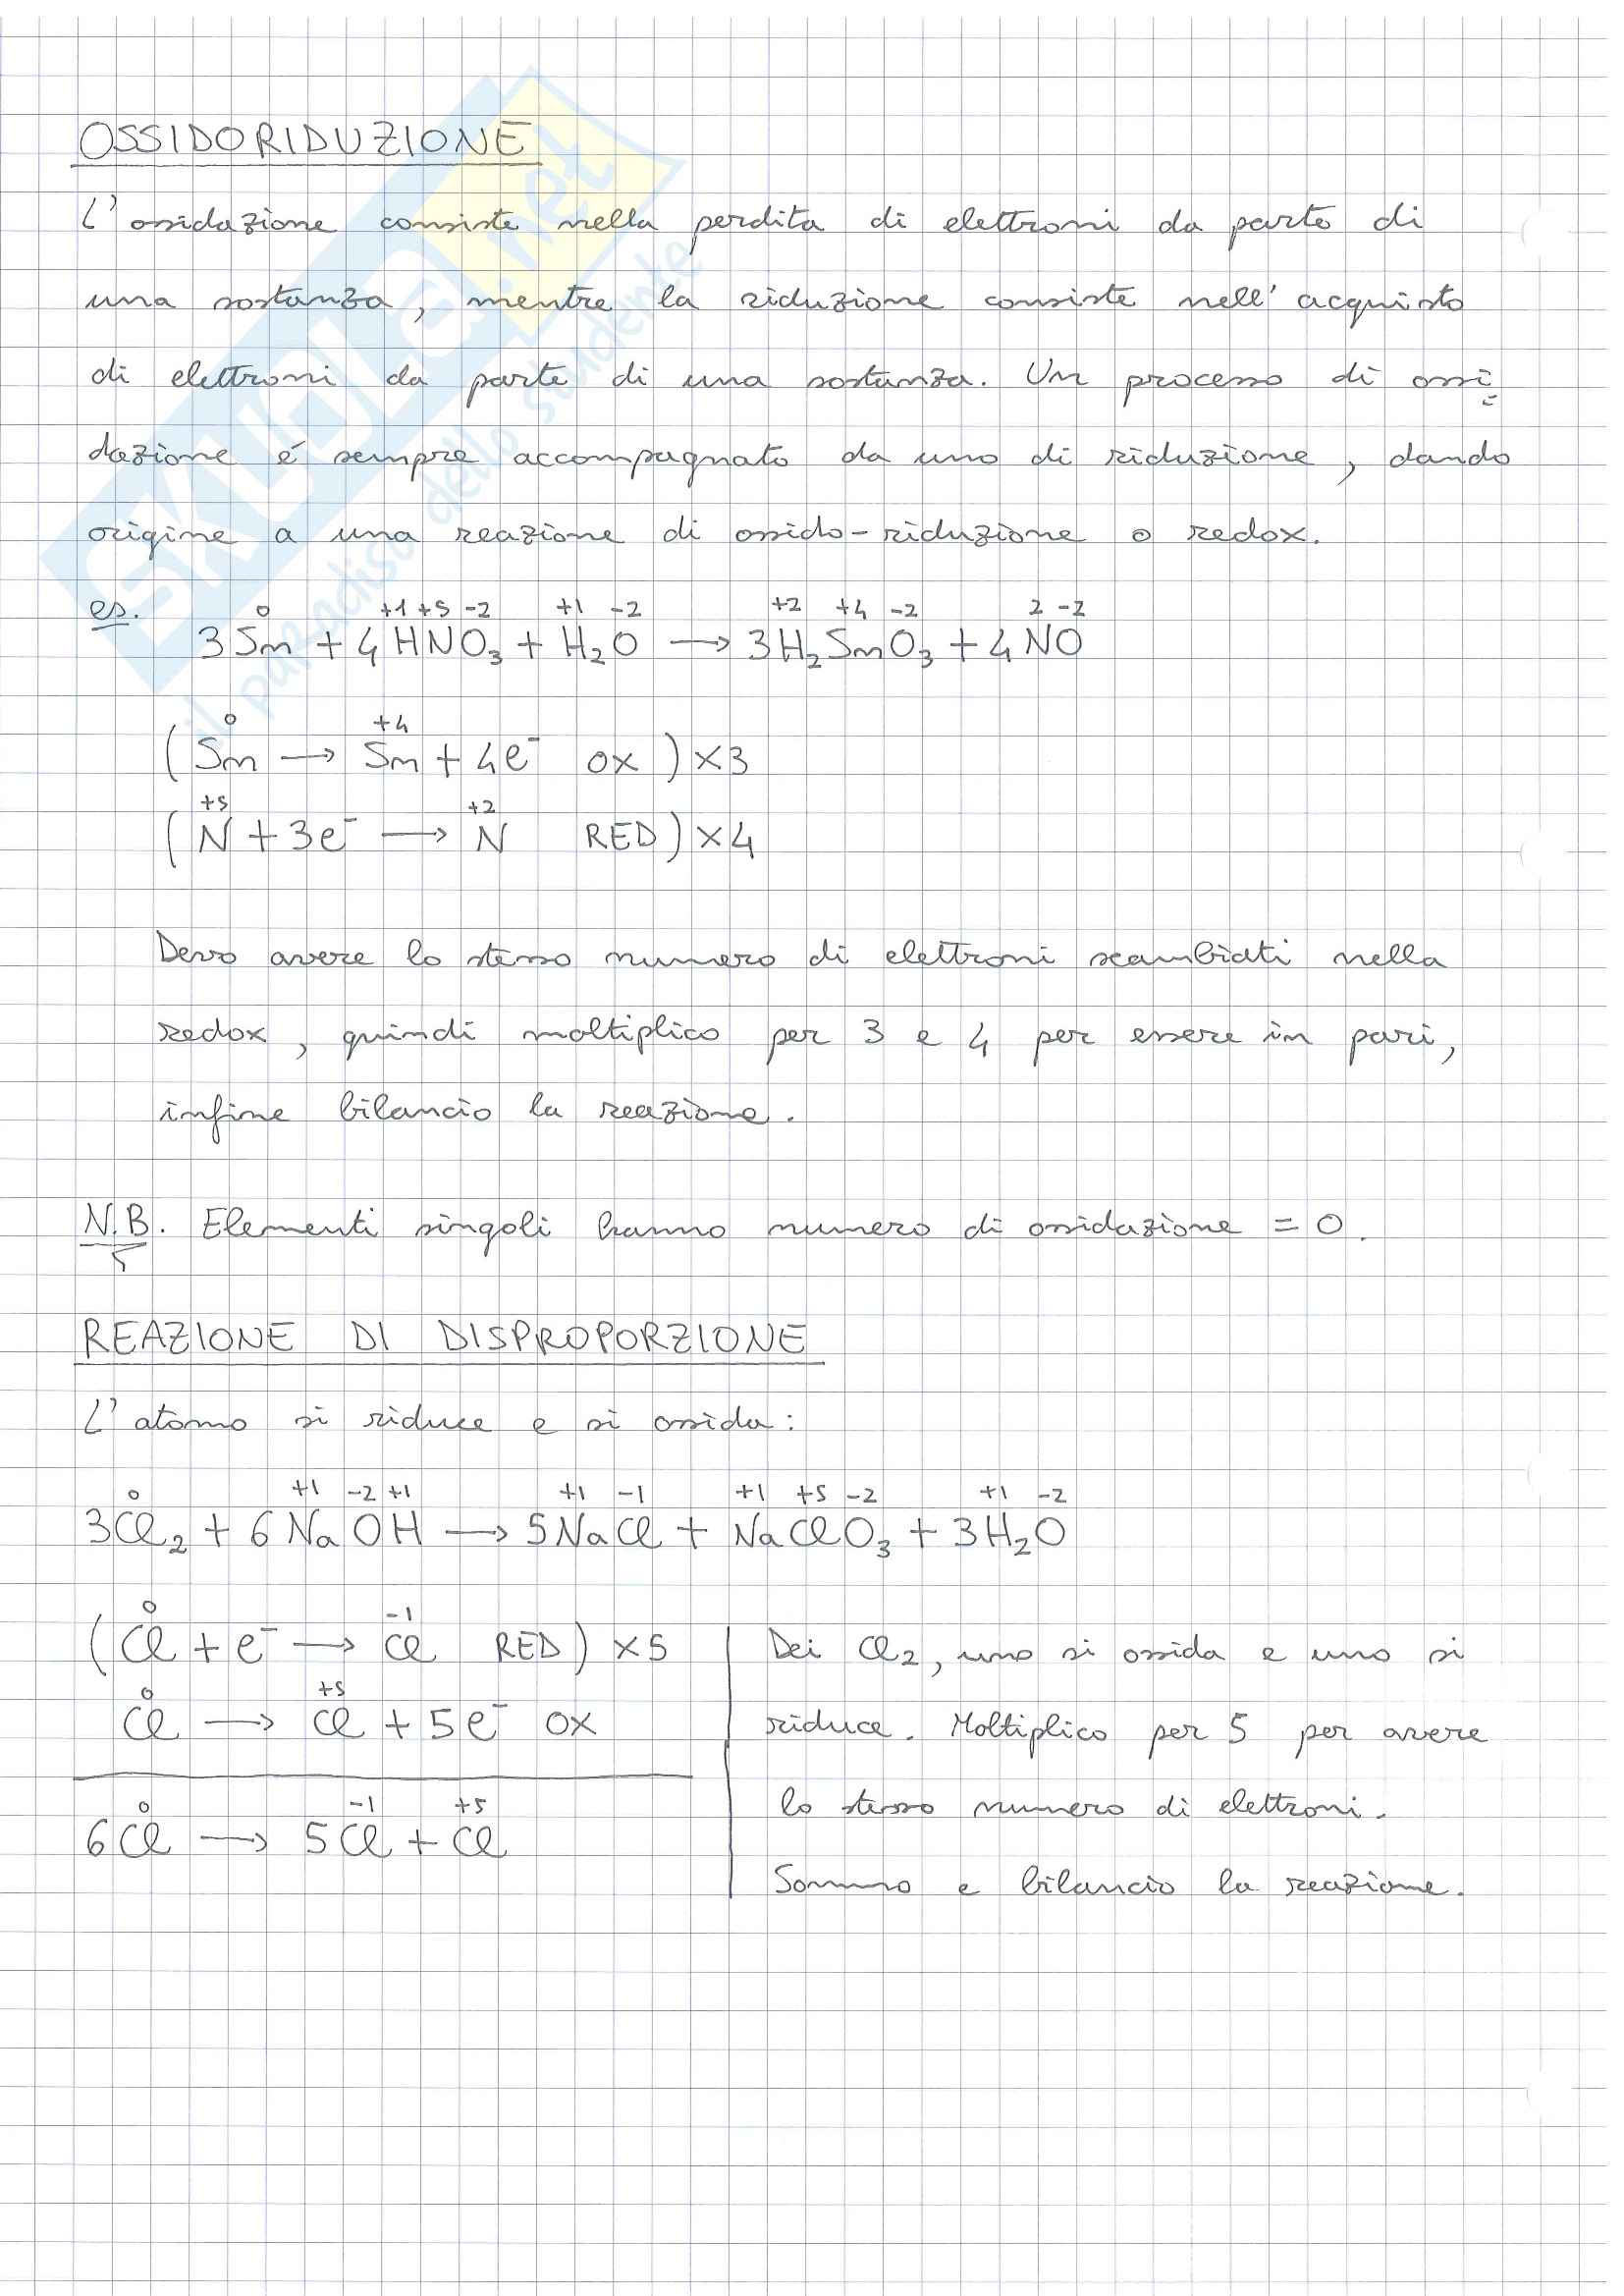 OSSIDORIDUZIONE
L'ossidazione consiste nella perdita di elettroni da parte di
una sostanza, mentre la riduzione consiste nell'acquisto
di elettroni da parte di una sostanza. Un processo di ossi
dazione é sempre accompagnato da uno di riduzione, dando
origine a una reazione di ossido-riduzione o redox.
es. 0 +1 +5 -2 +1 -2 +2 +4 -2 2 -2
3Sn + 4HNO₃ + H₂O → 3H₂SnO₃ + 4NO
0 +4
(Sn → Sn + 4e⁻ OX) ×3
+5 +2
(N + 3e⁻ → N RED) ×4
Devo avere lo stesso numero di elettroni scambiati nella
redox, quindi moltiplico per 3 e 4 per essere in pari,
infine bilancio la reazione.
N.B. Elementi singoli hanno numero di ossidazione = 0.
REAZIONE DI DISPROPORZIONE
L'atomo si riduce e si ossida:
0 +1 -2 +1 +1 -1 +1 +5 -2 +1 -2
3Cl₂ + 6NaOH → 5NaCl + NaClO₃ + 3H₂O
0 -1
(Cl + e⁻ → Cl RED) ×5
0 +5
Cl → Cl + 5e⁻ OX
0 -1 +5
6Cl → 5Cl + Cl
Dei Cl₂, uno si ossida e uno si
riduce. Moltiplico per 5 per avere
lo stesso numero di elettroni.
Sommo e bilancio la reazione.
SKUOLA.net
il paradiso dello studente